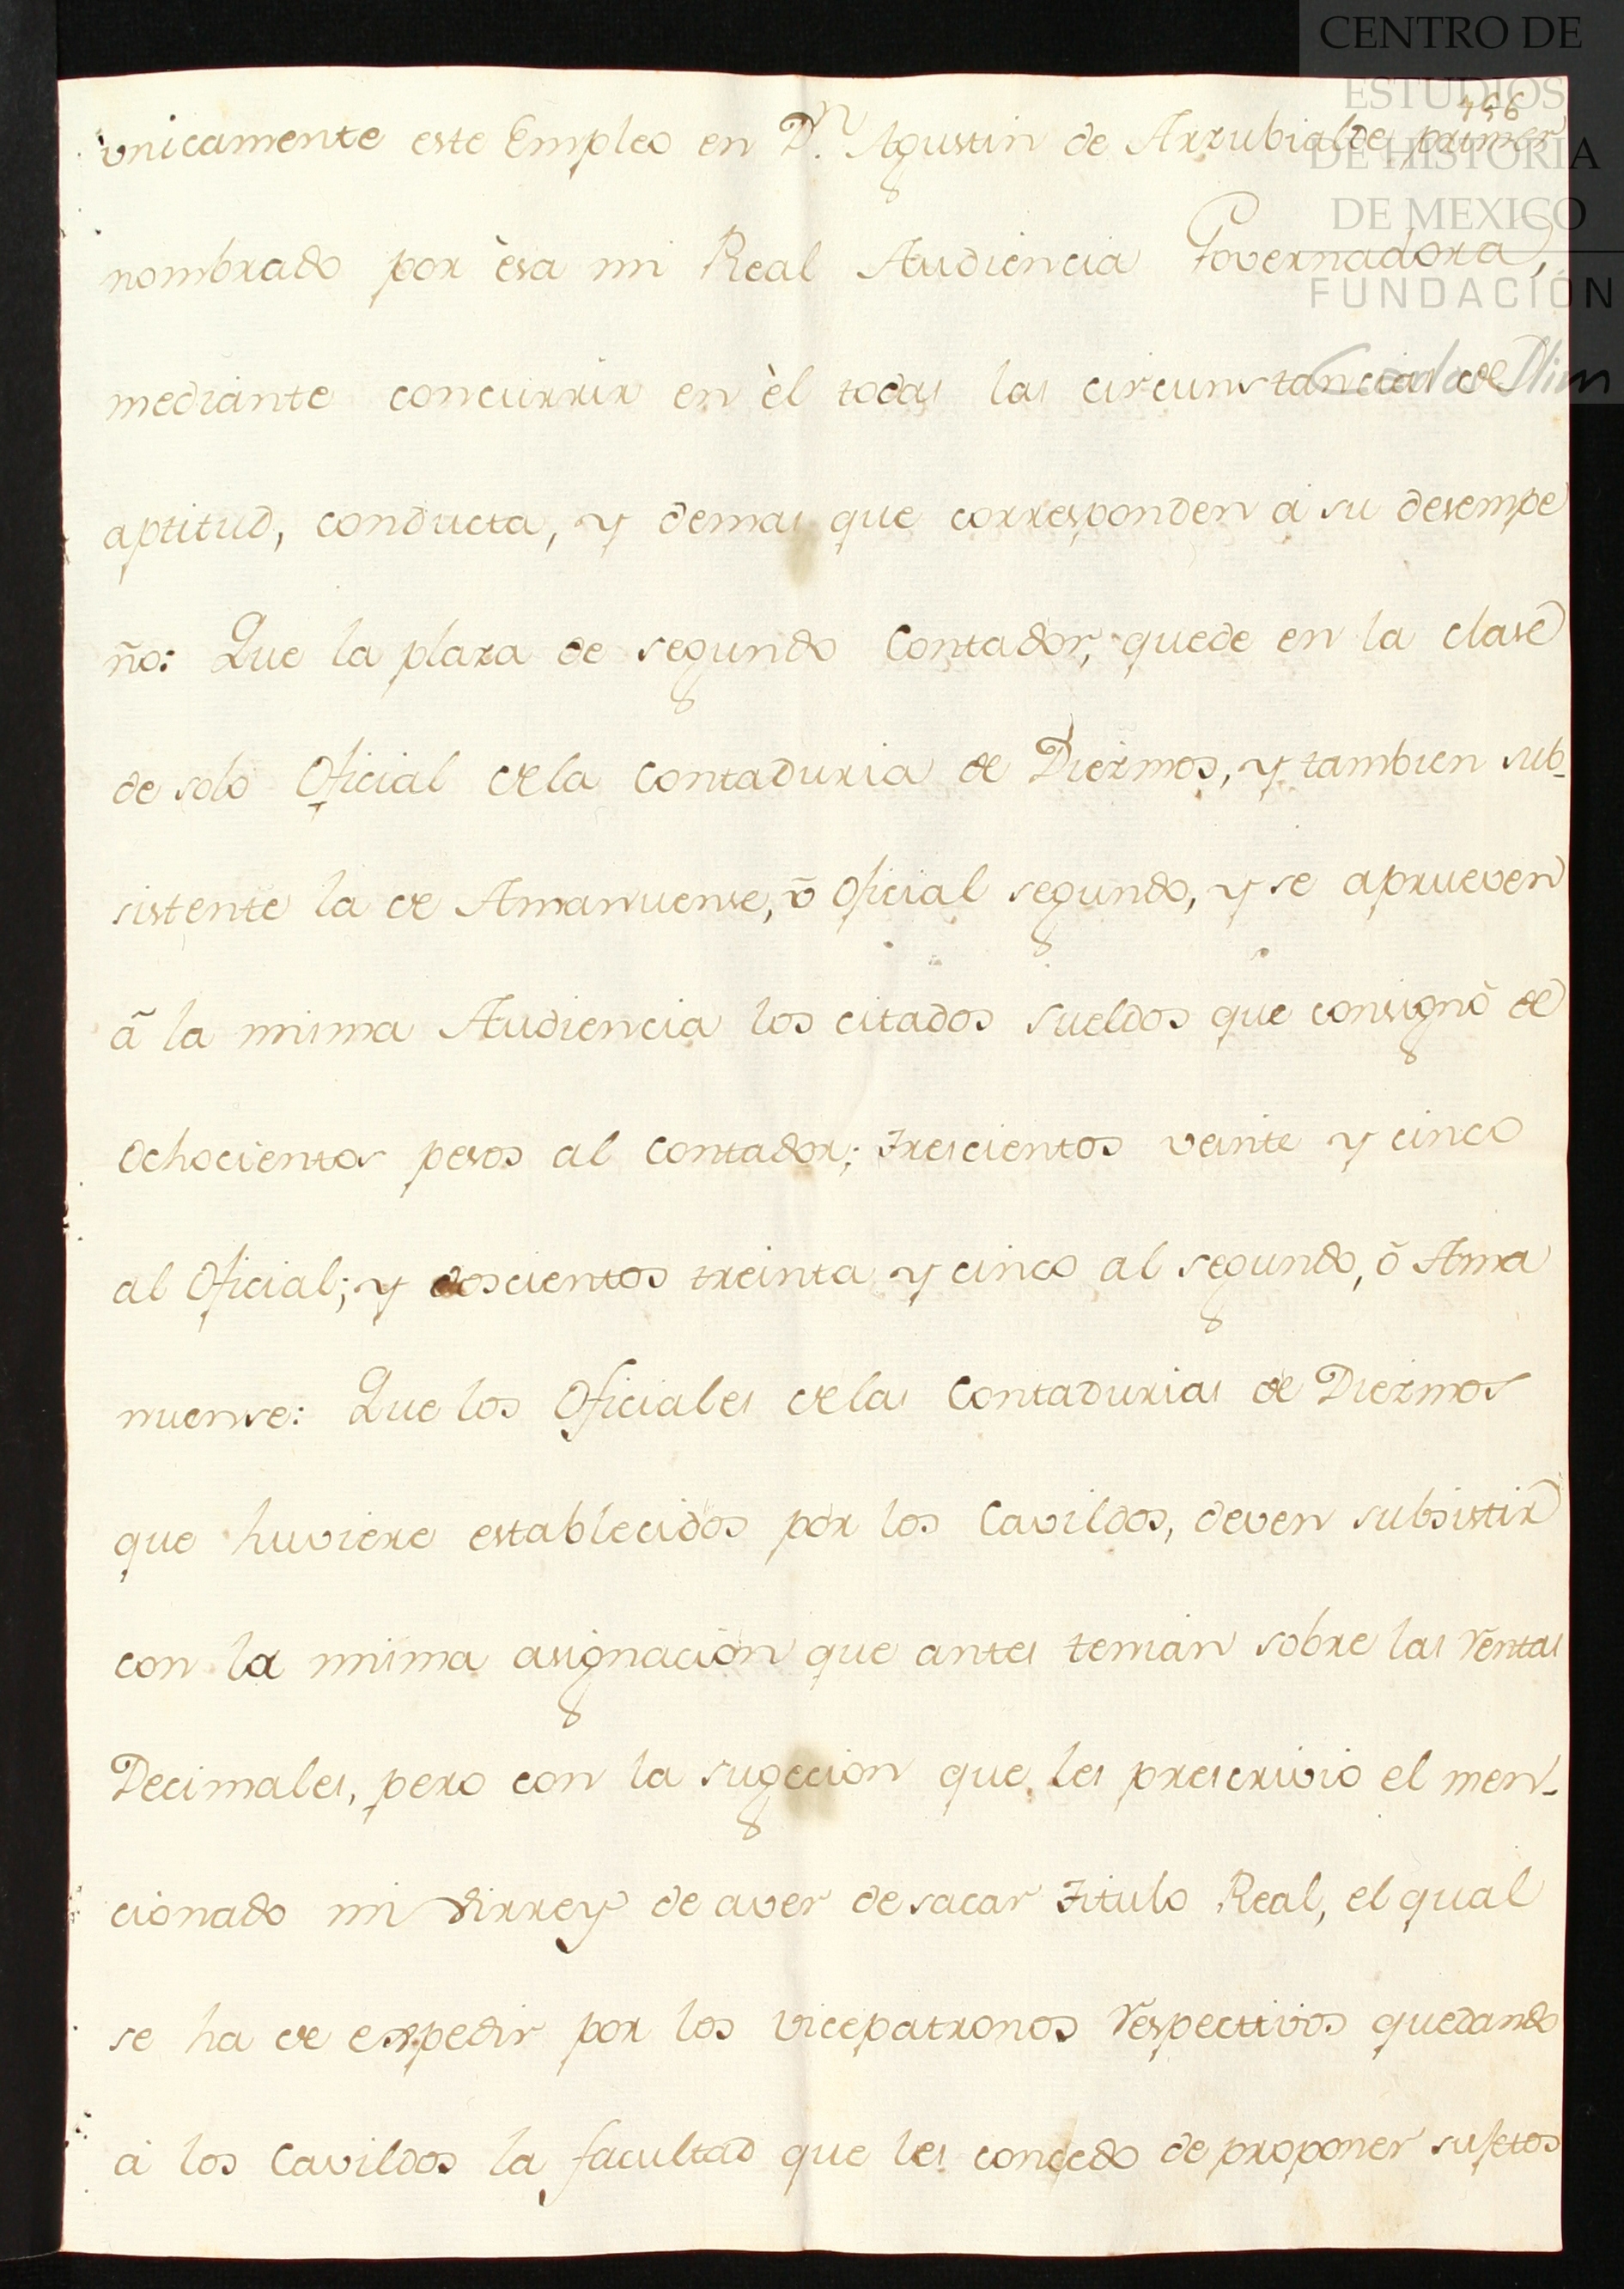 CENTRO DE
ESTUDIOS
DE HISTORIA
DE MEXICO
FUNDACIÓN
Carlos Slim
unicamente este Empleo en D.n Agustin de Arrubialde, primer
nombrado por èsa mi Real Audiencia Governadora,
mediante concurrir en èl todas las circunstancias de
aptitud, conducta, y demas que corresponden à su desempe
ño: Que la plaza de segundo Contador, quede en la clase
de solo Oficial dela Contaduria de Diezmos, y tambien sub-
sistente la de Amanuense, ò Oficial segundo, y se aprueven
à la misma Audiencia los citados sueldos que consignò de
ochocientos pesos al Contador; trescientos veinte y cinco
al Oficial; y doscientos treinta y cinco al segundo, ò Ama
nuense: Que los Oficiales delas Contadurias de Diezmos
que huviere establecidos por los Cavildos, deven subsistir
con la misma asignacion que antes tenian sobre las rentas
Decimales, pero con la sugecion que les prescrivio el men-
cionado mi Virrey de aver de sacar Titulo Real, el qual
se ha de expedir por los vicepatronos respectivos quedando
à los Cavildos la facultad que les concedo de proponer sujetos